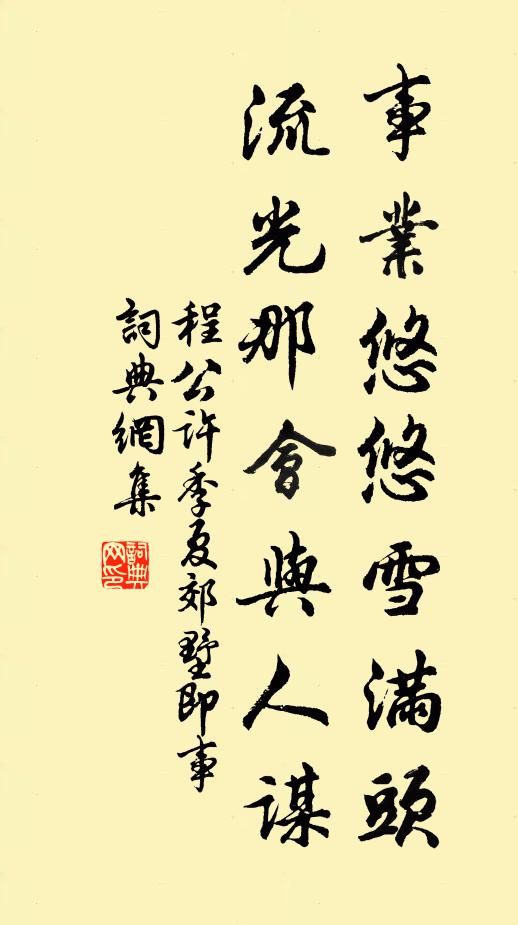 事業悠悠雪滿頭
流光那會與人謀
程公許季夏郊墅即事
詞典網集
詞典网印